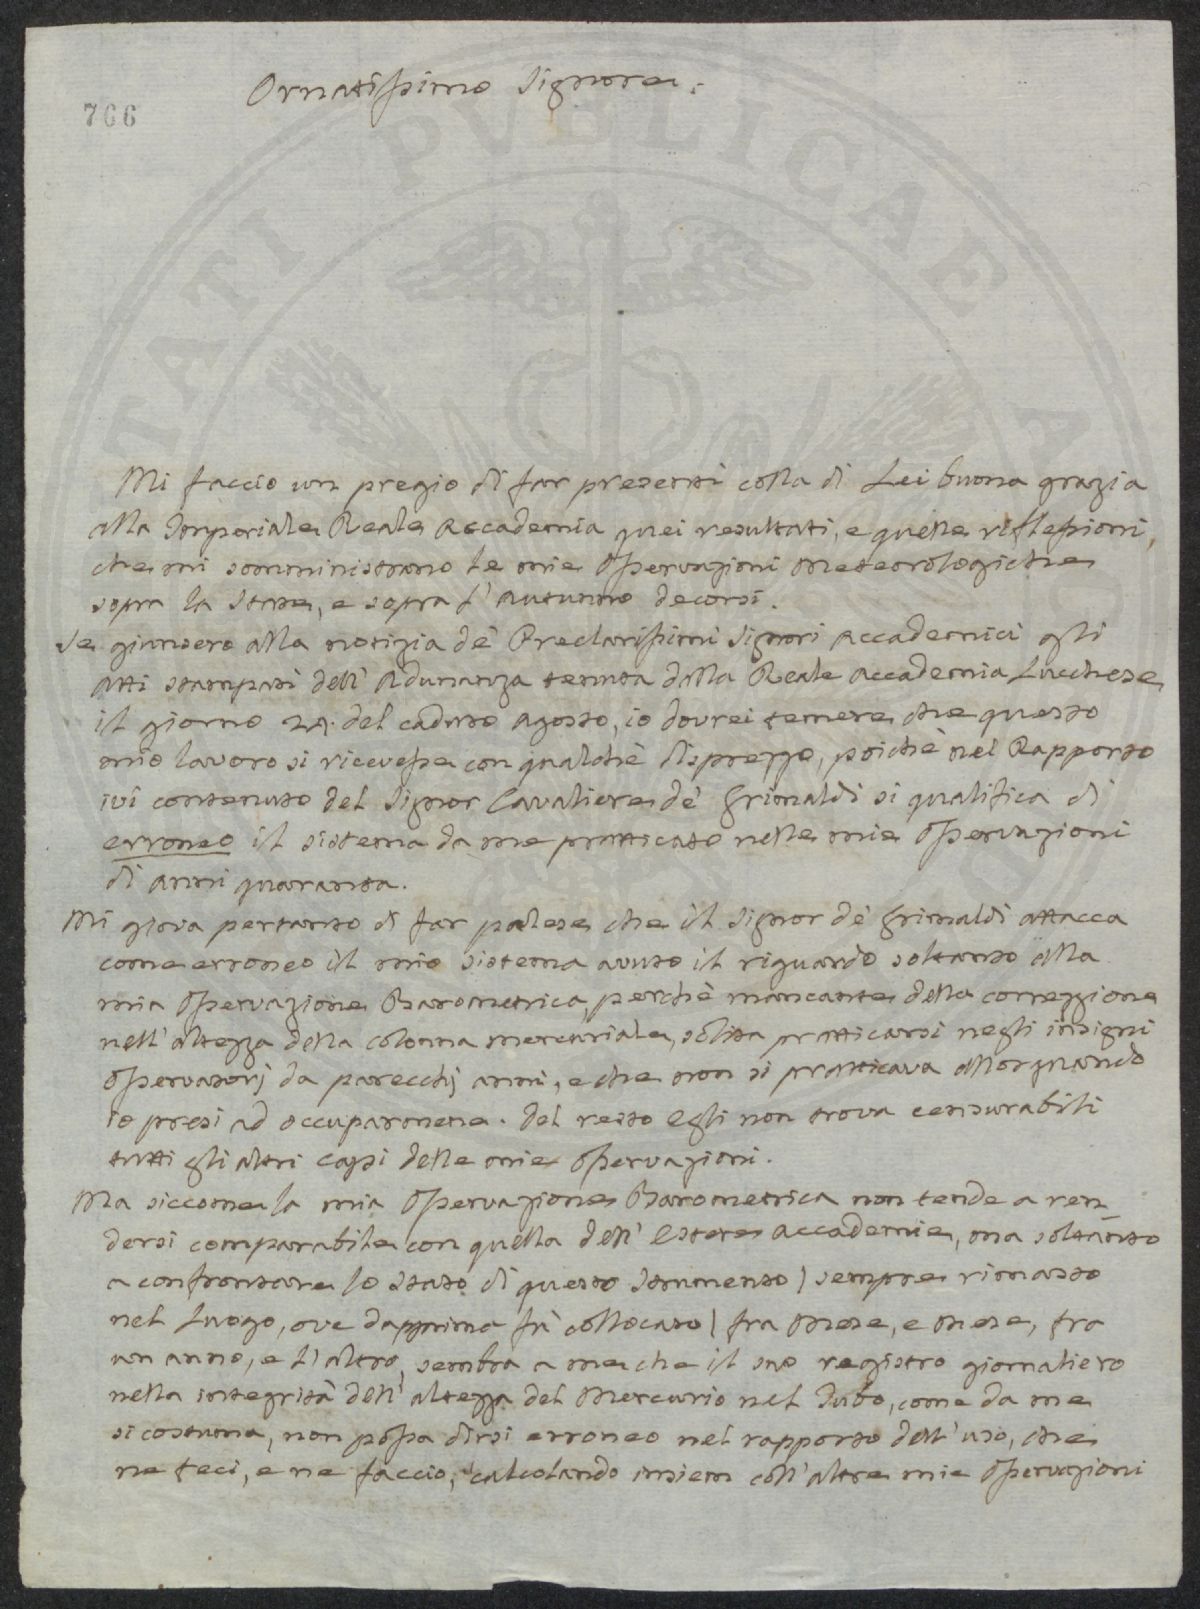 Ornatissimo Signore.
766
Mi faccio un pregio di far presenti colla di Lei buona grazia
alla Imperiale Reale Accademia quei resultati, e quelle riflessioni,
che mi somministrano le mie Osservazioni Meteorologiche
sopra la State, e sopra l'Autunno decorsi.
Se giunsero alla notizia de' Preclarissimi Signori Accademici gli
Atti stampati dell'Adunanza tenuta dalla Reale Accademia Lucchese
il giorno 29. del caduto Agosto, io dovrei temere che questo
mio lavoro si ricevesse con qualchè disprezzo, poichè nel Rapporto
ivi contenuto del Signor Cavaliere de' Grimaldi si qualifica di
erroneo il sistema da me pratticato nelle mie Osservazioni
di anni quaranta.
Mi giova pertanto di far palese che il Signor de' Grimaldi attacca
come erroneo il mio sistema avuto il riguardo soltanto alla
mia Osservazione Barometrica, perchè mancante della correzzione
nell'altezza della colonna mercuriale, solita pratticarsi negli insigni
Osservatorj da parecchj anni, e che non si pratticava allorquando
io presi ad occuparmene. Del resto egli non trova censurabili
tutti gli altri capi delle mie Osservazioni.
Ma siccome la mia Osservazione Barometrica non tende a ren
dersi comparabile con quella dell'Estere Accademie, ma soltanto
a confrontare lo stato di questo Strumento ) sempre rimasto
nel Luogo, ove dapprima fu' collocato ( fra Mese, e Mese, fra
un anno, e l'altro, sembra a me che il suo registro giornaliero
nella integrità dell'altezza del Mercurio nel Tubo, come da me
si costuma, non possa dirsi erroneo nel rapporto dell'uso, che
ne feci, e ne faccio, calcolando insiem coll'altre mie Osservazioni